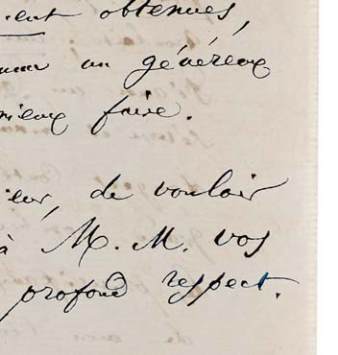 ient obtenues,
un généreux
mieux faire.
ieur, de vouloir
à M. M. vos
profond respect.